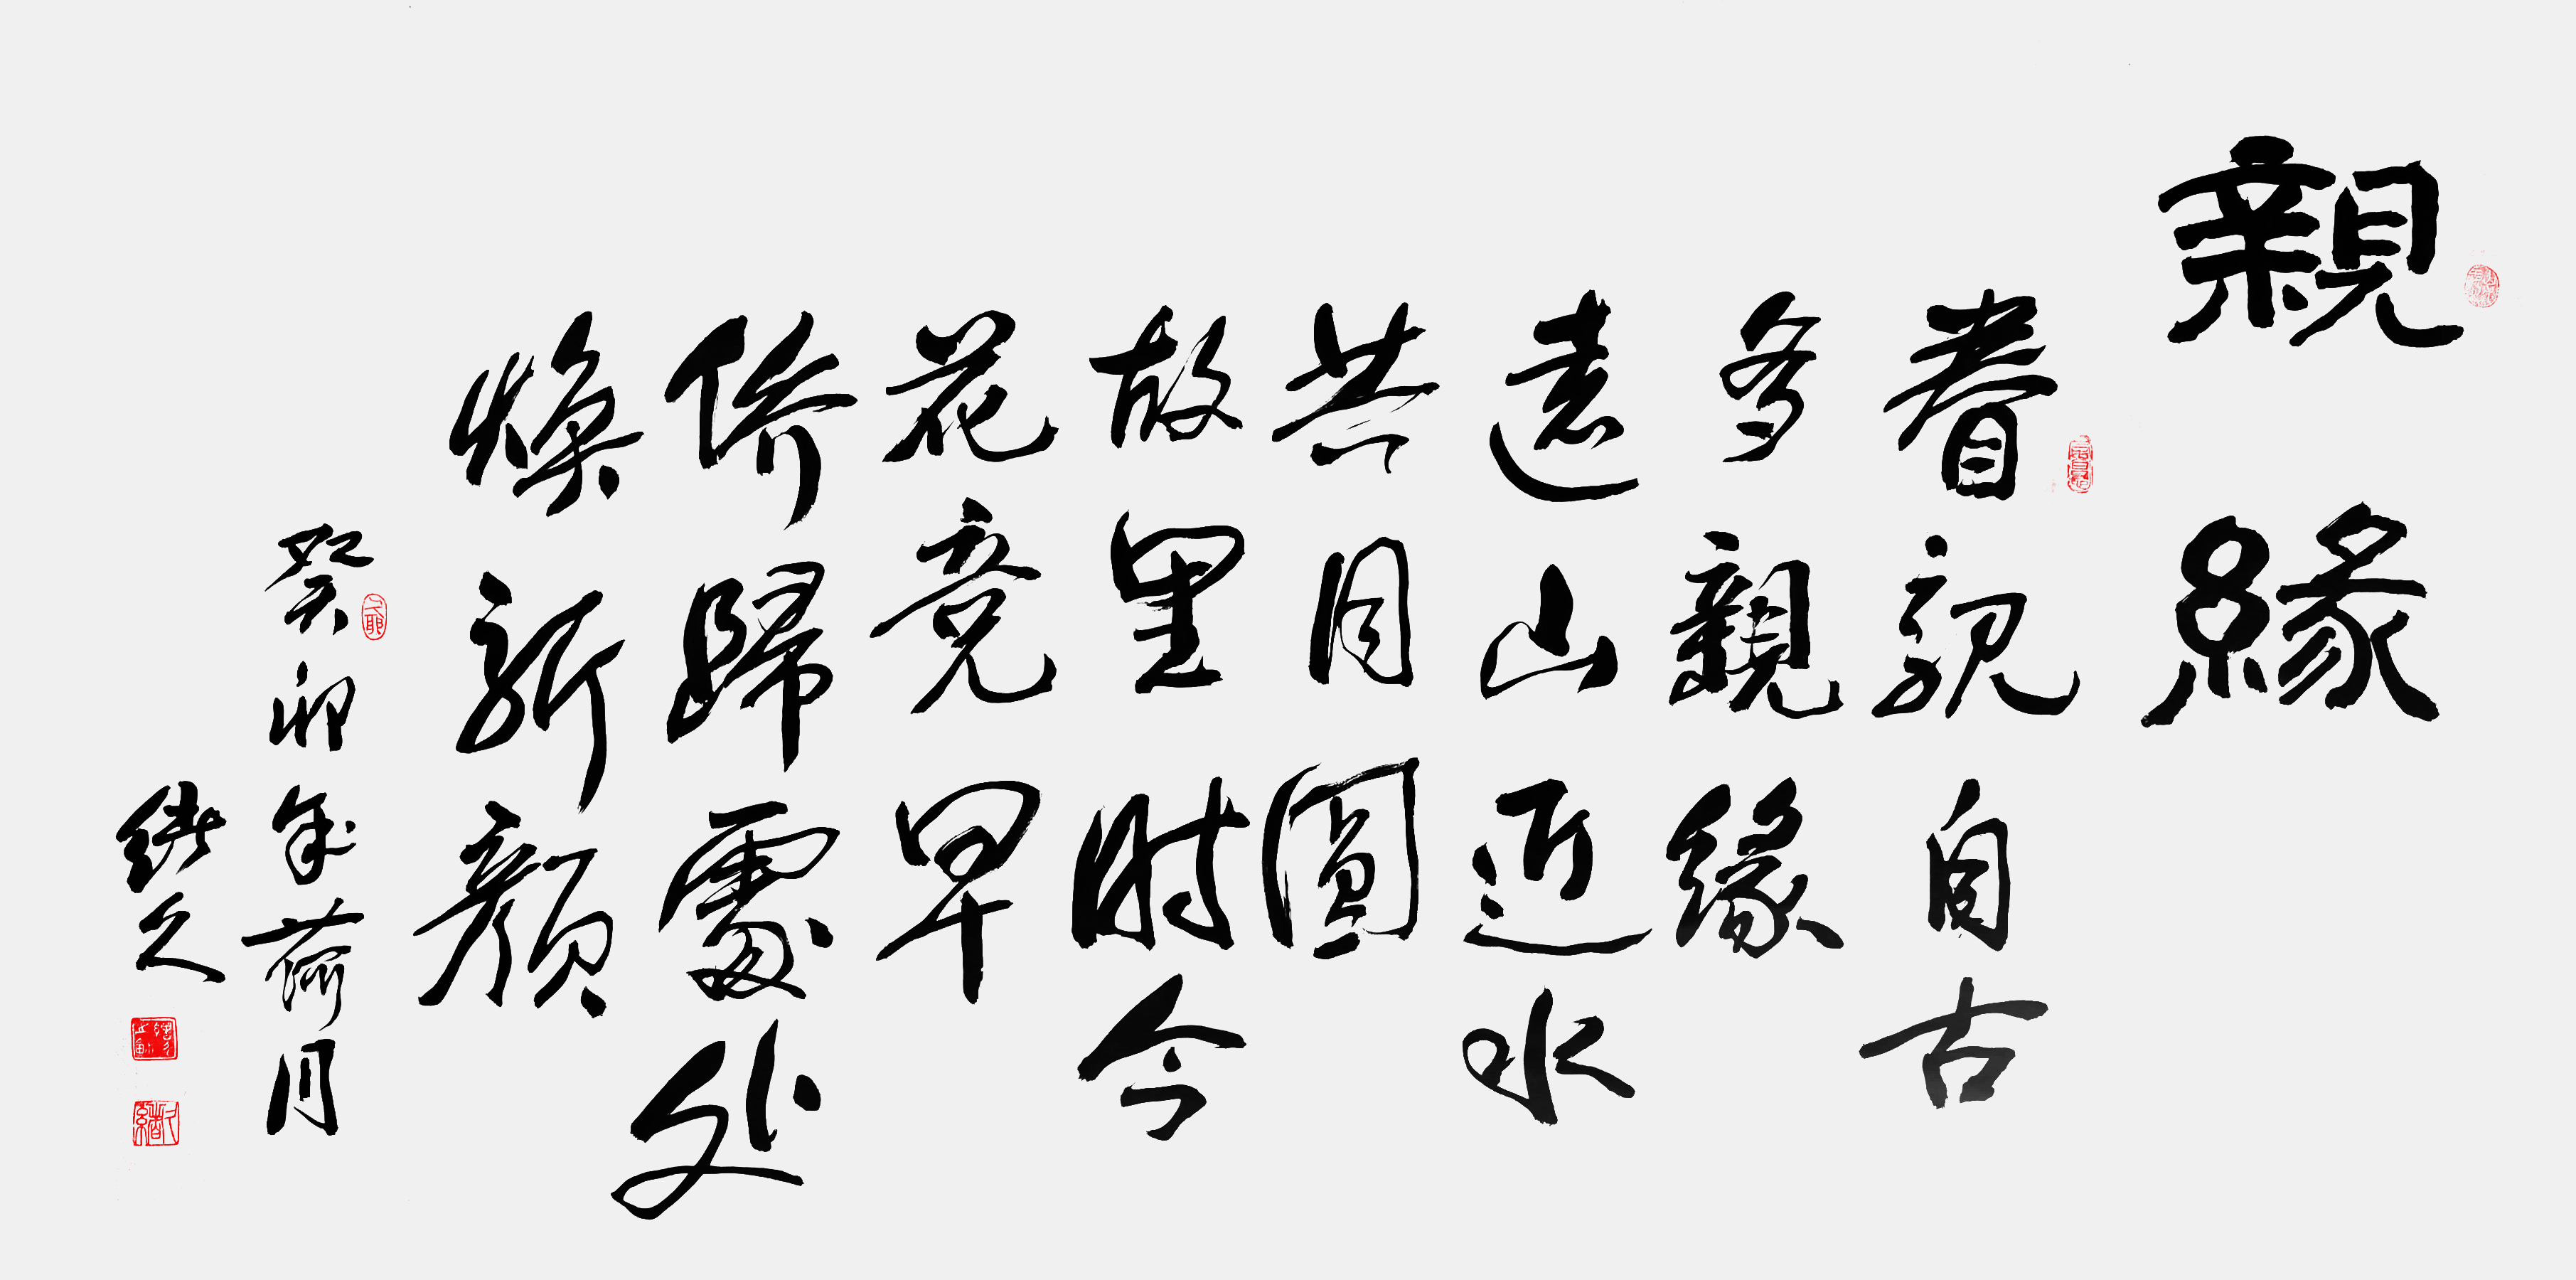 親緣
眷親自古
多親緣
遠山近水
共月圓
故里时今
花竞早
侨歸處处
煥新顏
癸卯年荷月
緒久